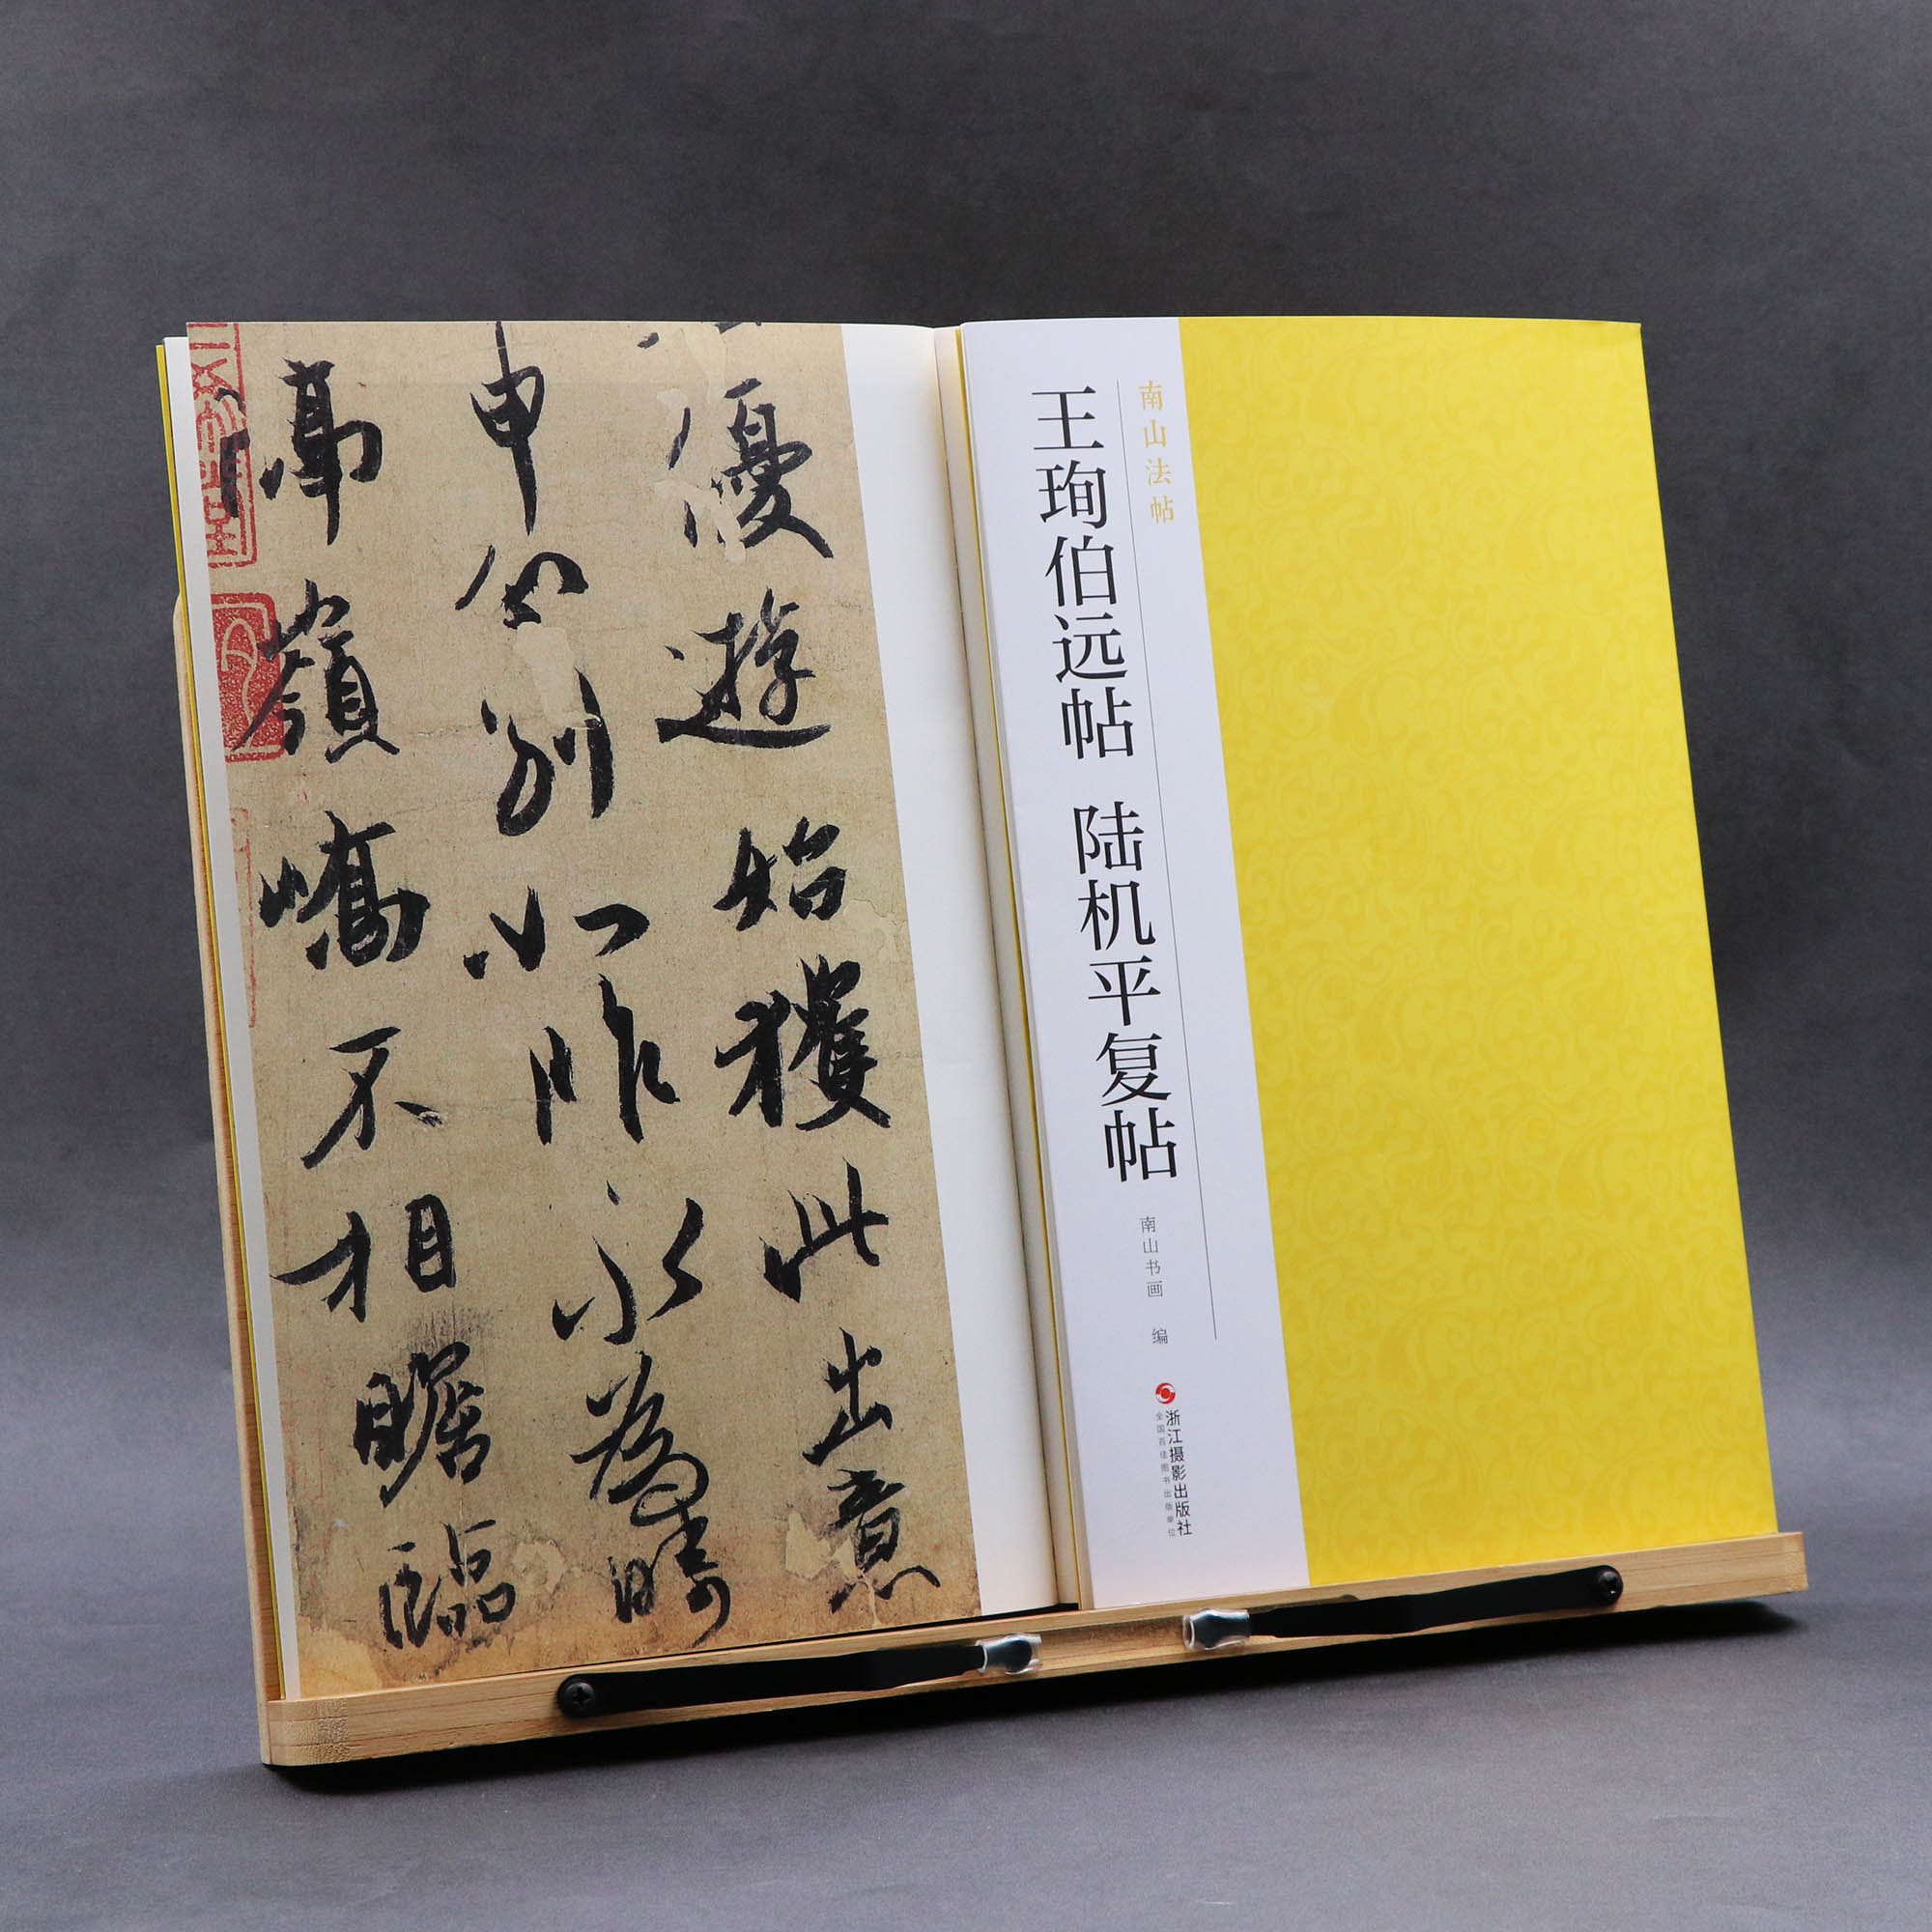 優遊始獲此出意
申分別如昨永為疇
嶺嶠不相瞻臨
南山法帖
王珣伯远帖 陆机平复帖
南山书画 编
浙江摄影出版社
全国百佳图书出版单位